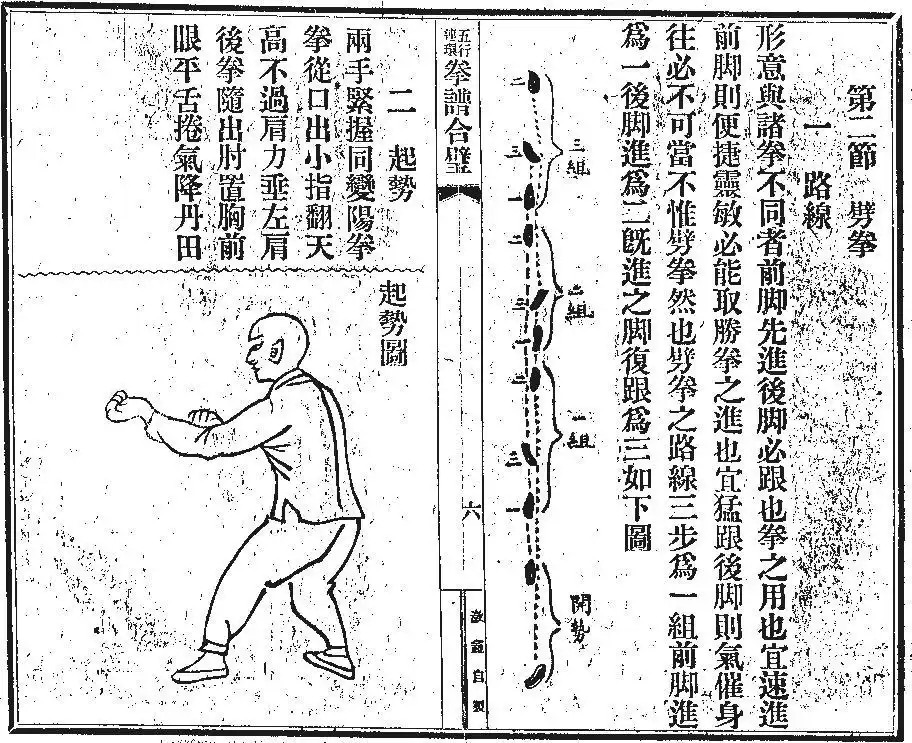 第二節 劈拳
一 路線
形意與諸拳不同者前脚先進後脚必跟也拳之用也宜速進
前脚則便捷靈敏必能取勝拳之進也宜猛跟後脚則氣催身
往必不可當不惟劈拳然也劈拳之路線三步為一組前脚進
爲一後脚進爲二旣進之脚復跟爲三如下圖
三組
二
三
一
二組
二
三
一
一組
二
三
一
開勢
五行
連環
拳譜合璧
六
二 起勢
兩手緊握同變陽拳
拳從口出小指翻天
高不過肩力垂左肩
後拳隨出肘置胸前
眼平舌捲氣降丹田
起勢圖